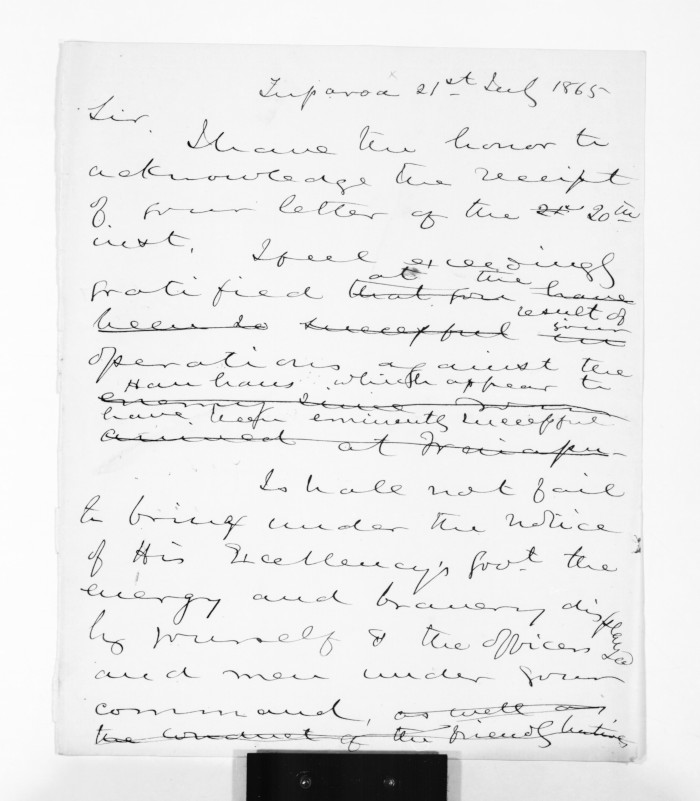 Tuparoa 21st July 1865
Sir.
I have the honor to
acknowledge the receipt
of your letter of the 21st 20th
inst. I feel exceedingly
at the
gratified that you have
result of
been so successful in your
operations against the
Hau haus which appear to
enemy since you
have been eminently successful
arrived at Waiapu
I shall not fail
to bring under the notice
of His Excellency's Govt. the
energy and bravery displayed
by yourself & the officers
and men under your
command, as well as
the conduct of the friendly natives